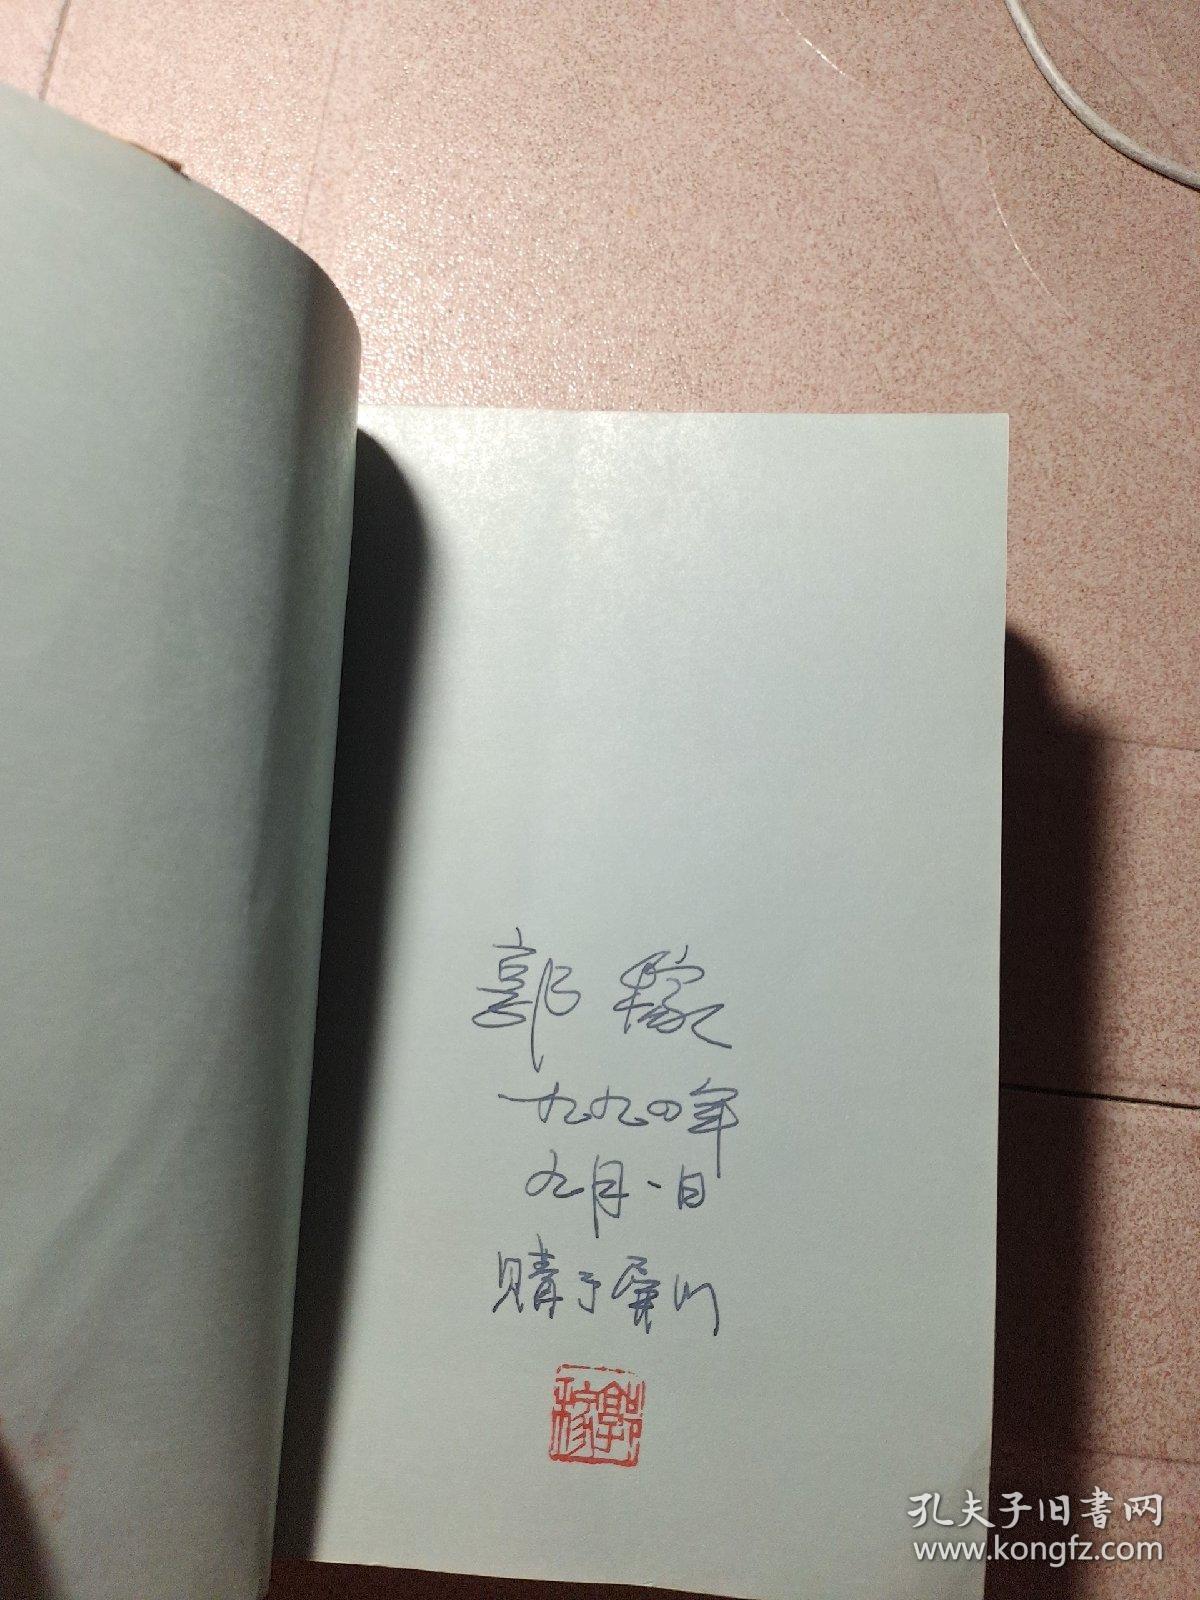 郭稼
一九九四年
九月一日
购于屏山
郭稼
孔夫子旧書网
www.kongfz.com